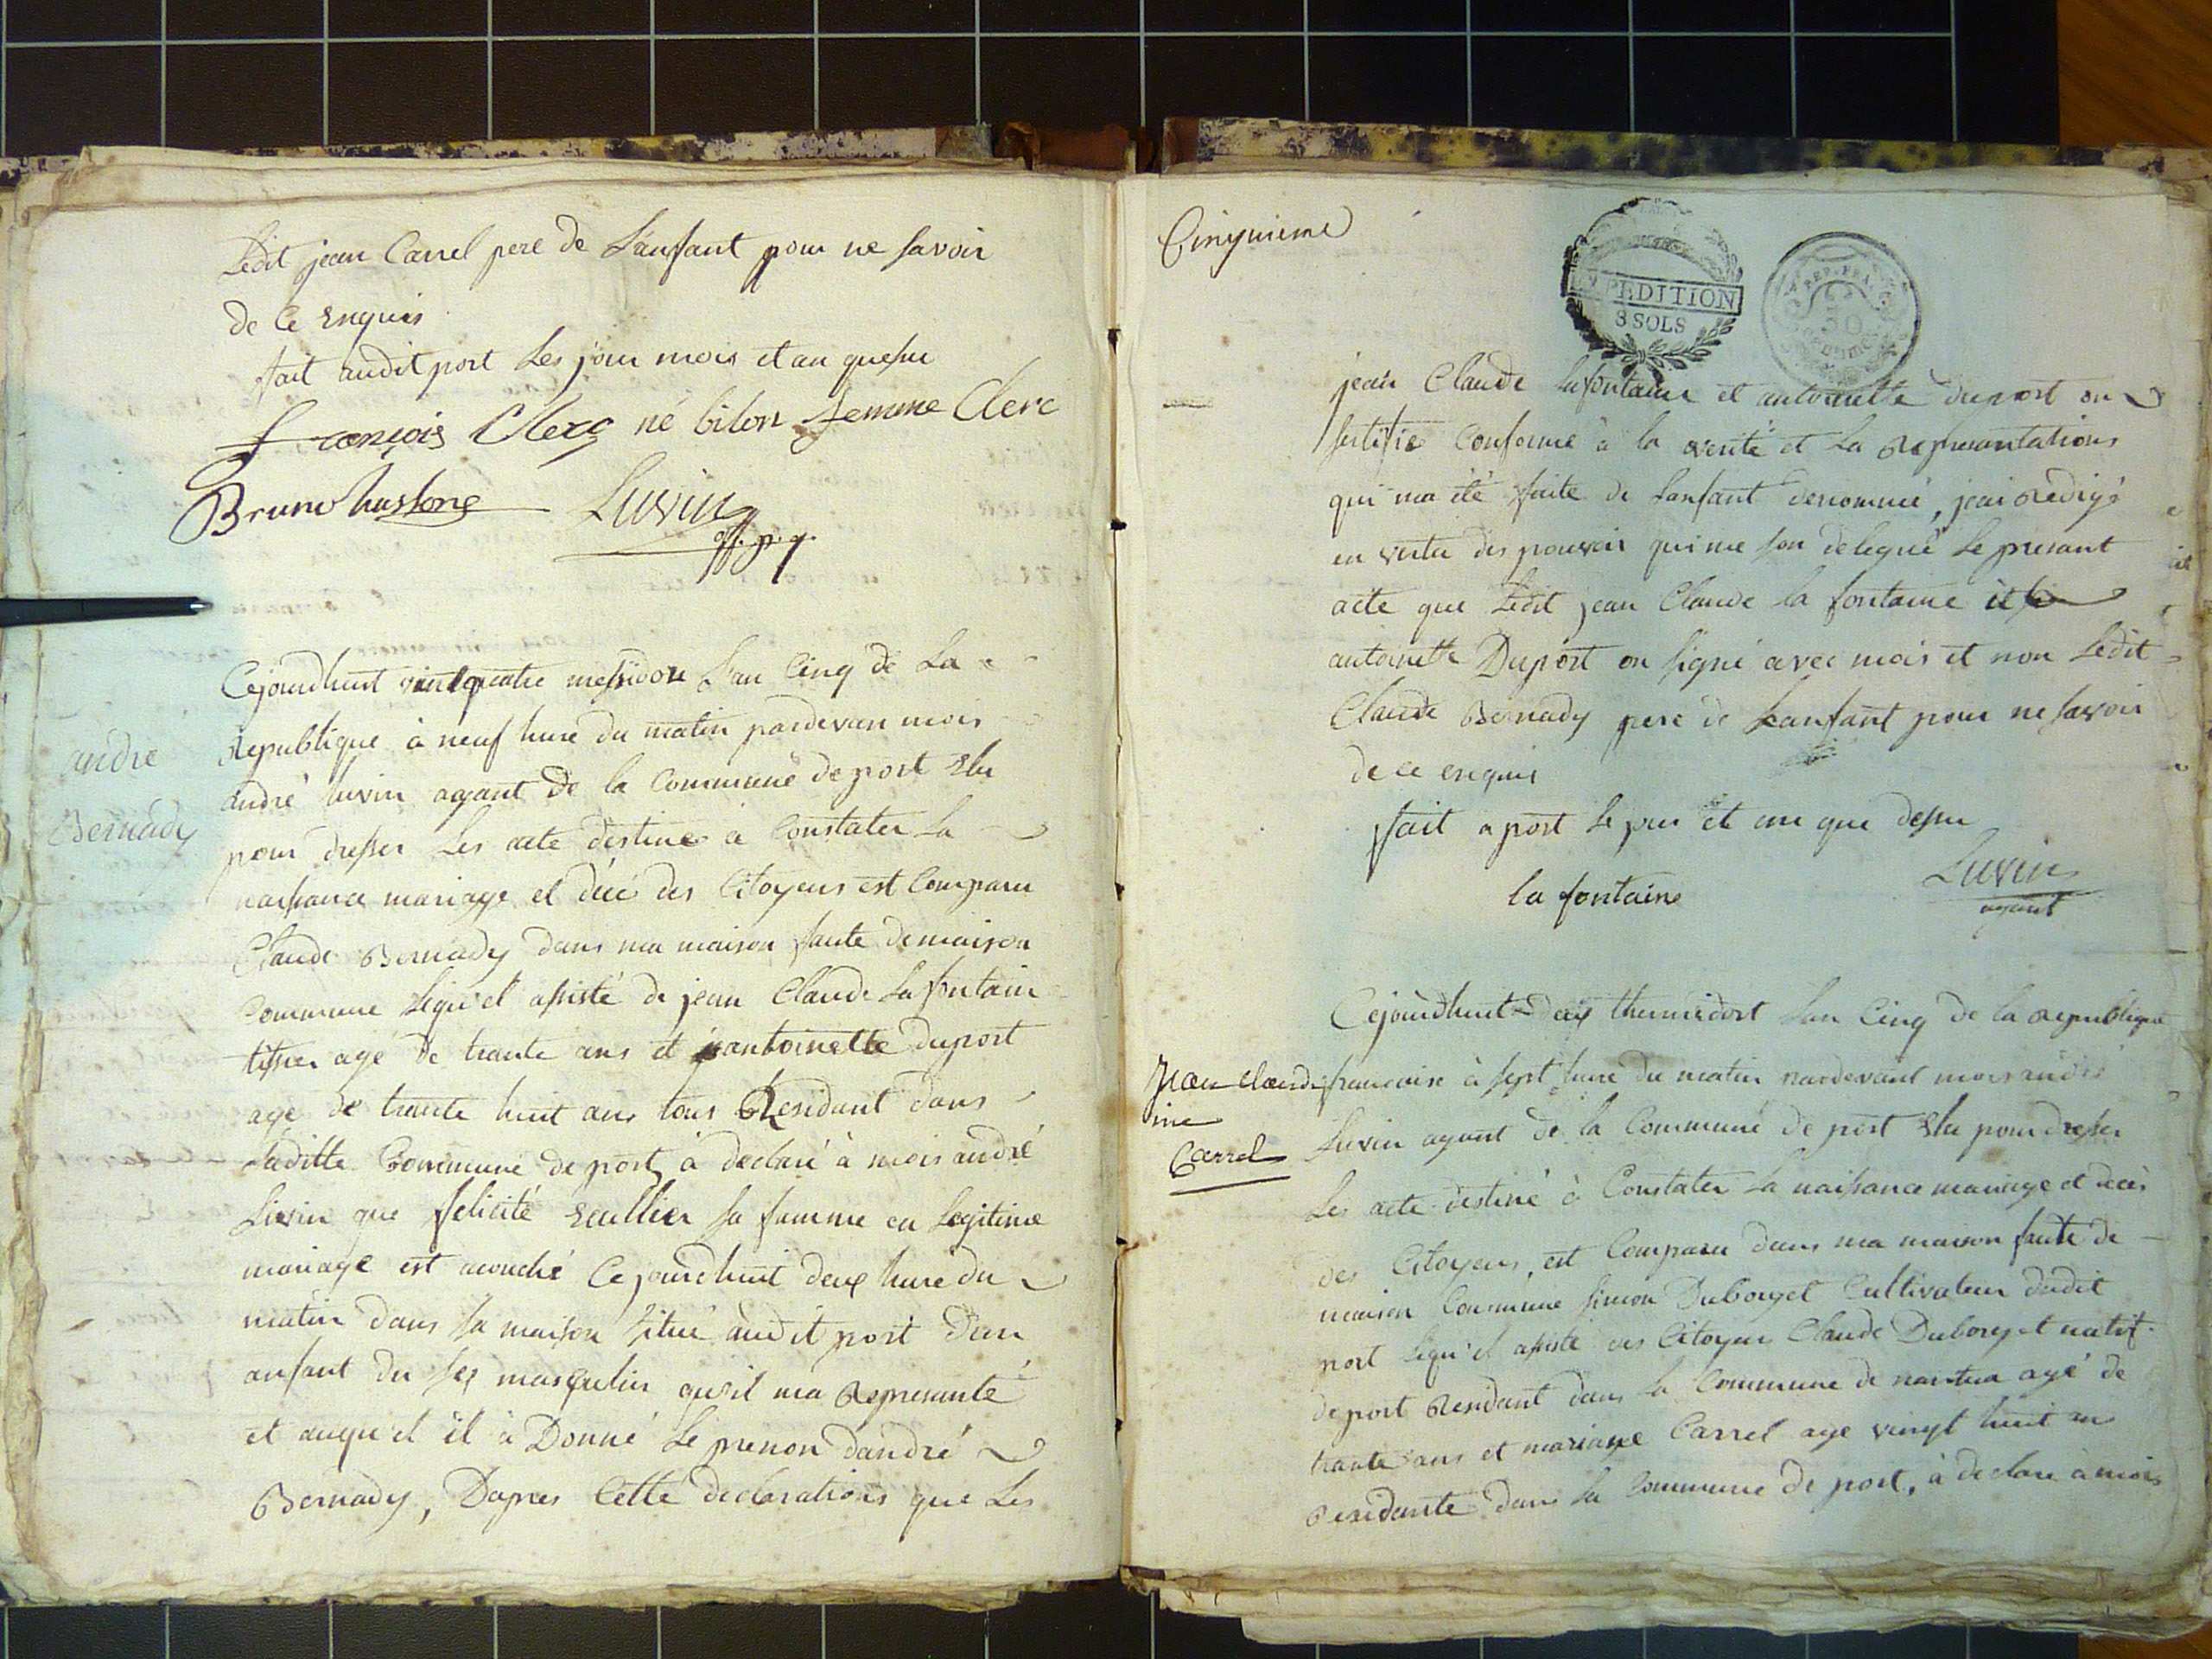 Ledit jean Carrel pere de L'anfant pour ne savoir
de Ce Enquis
fait audit port Les jour mois et an quesu
françois Clerc né bilon femme Clerc
Bruno Luvin
off. p. q.
andre
Bernady
Cejourdhuit vintquatre messidore L'an Cinq de La
Republique à neuf hure du matin pardevan mois
andré Luvin agant De la Commune de port Elu
pour dresser Les acte destine a Constater La
naissance mariage et décé des Citoyens est Comparu
Claude Bernady dans ma maison faute demaison
Commune Lequel assisté de jean Claude Lafontain
agé de trante ans et antoinette duport
agé de trante huit ans tous Residant dans
Laditte Commune de port, à declaré à mois andré
Luvin que felicité sa famme en Legitime
mariage est acouché Cejourdhuit deux hure du
matin dans sa maison situé audit port Dun
anfant du sex masqulin quil ma Represanté
et auquel il à Donné Le prenon dandré
Bernady, Dapres Cette declarations que Les
Cinquieme
EXPEDITION
3 SOLS
REP. FRA
jean Claude Lafontaine et antoinette duport on
sertifié Conforme à la verité et La Represantations
qui ma été faite de Lanfant denommé, jai Redigé
en vertu des pouvoir qui me son delegué Le presant
acte que Ledit jean Claude la fontaine et
antoinette Duport on signé avec mois et non Ledit
Claude Bernady pere de Lanfant pour ne savoir
de ce enquis
fait a port Le jour et an que dessu
la fontaine Luvin
agant
jean claudi
ine
Carrel
Cejourdhuit thermidort Lan Cinq de la Republique
francaise à sept hure du matin pardevant mois andré
Luvin agant de la Commune de port Elu pour dresser
Les acte destiné à Constater La naissance mariage et décès
des Citoyens, est Comparu dans ma maison faute de
maison Commune simon Dubouget Cultivateur dudit
port Lequel assisté des Citoyens Claude Dubouget natif
de port Residant dans la Commune de nantua agé de
trante ans et mariane Carrel age vingt huit ans
Residante dans la Commune de port, à declare à mois